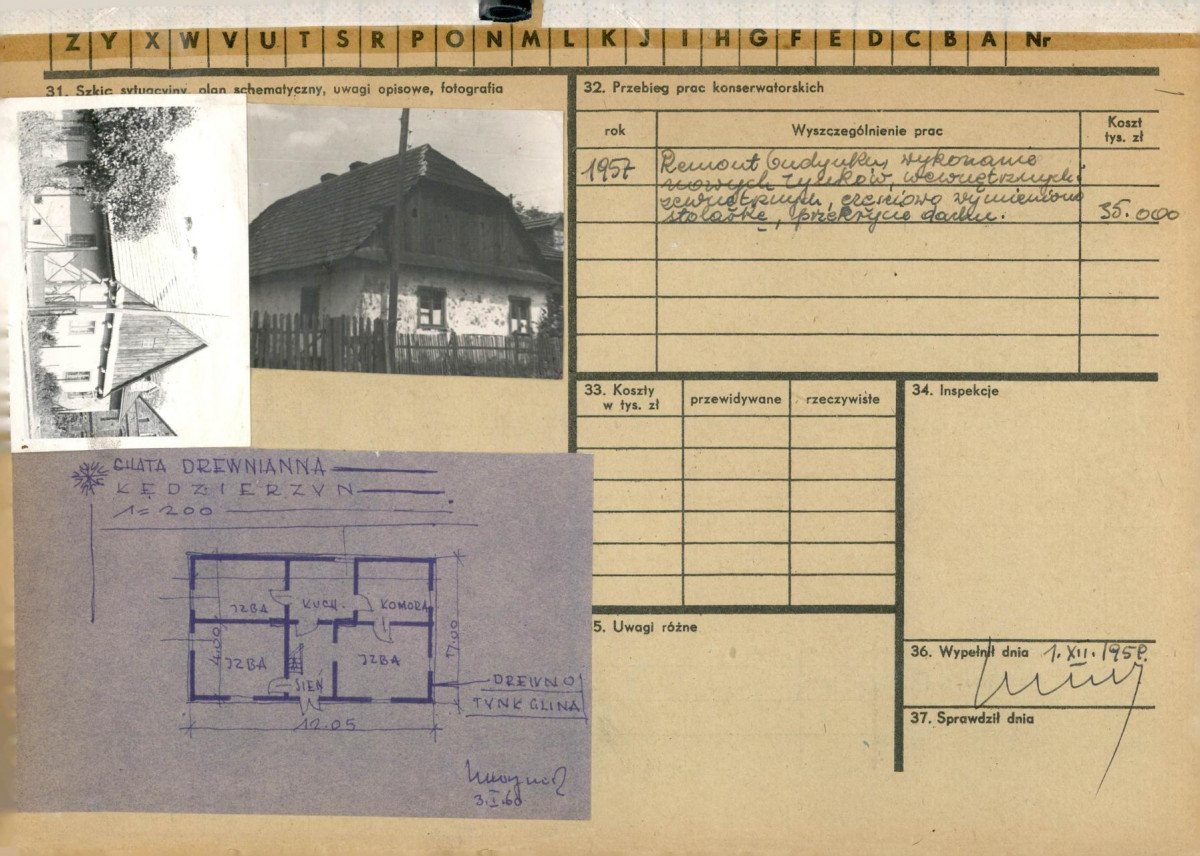 Z Y X W V U T S R P O N M L K J I H G F E D C B A Nr
31. Szkic sytuacyjny, plan schematyczny, uwagi opisowe, fotografia
32. Przebieg prac konserwatorskich
rok
Wyszczególnienie prac
Koszt
tys. zł
1957
Remont budynku, wykonanie
nowych tynków, wewnętrznych i
zewnętrznych, częściowo wymieniono
stolarkę, przekrycie dachu.
35.000
33. Koszty
w tys. zł
przewidywane
rzeczywiste
34. Inspekcje
5. Uwagi różne
36. Wypełnił dnia 1.XII.1959.
37. Sprawdził dnia
CHATA DREWNIANNA
KĘDZIERZYN
1=200
IZBA
KUCH.
KOMORA
4.00
7.00
IZBA
SIEŃ
IZBA
DREWNO
TYNK GLINA
12.05
3.I.60